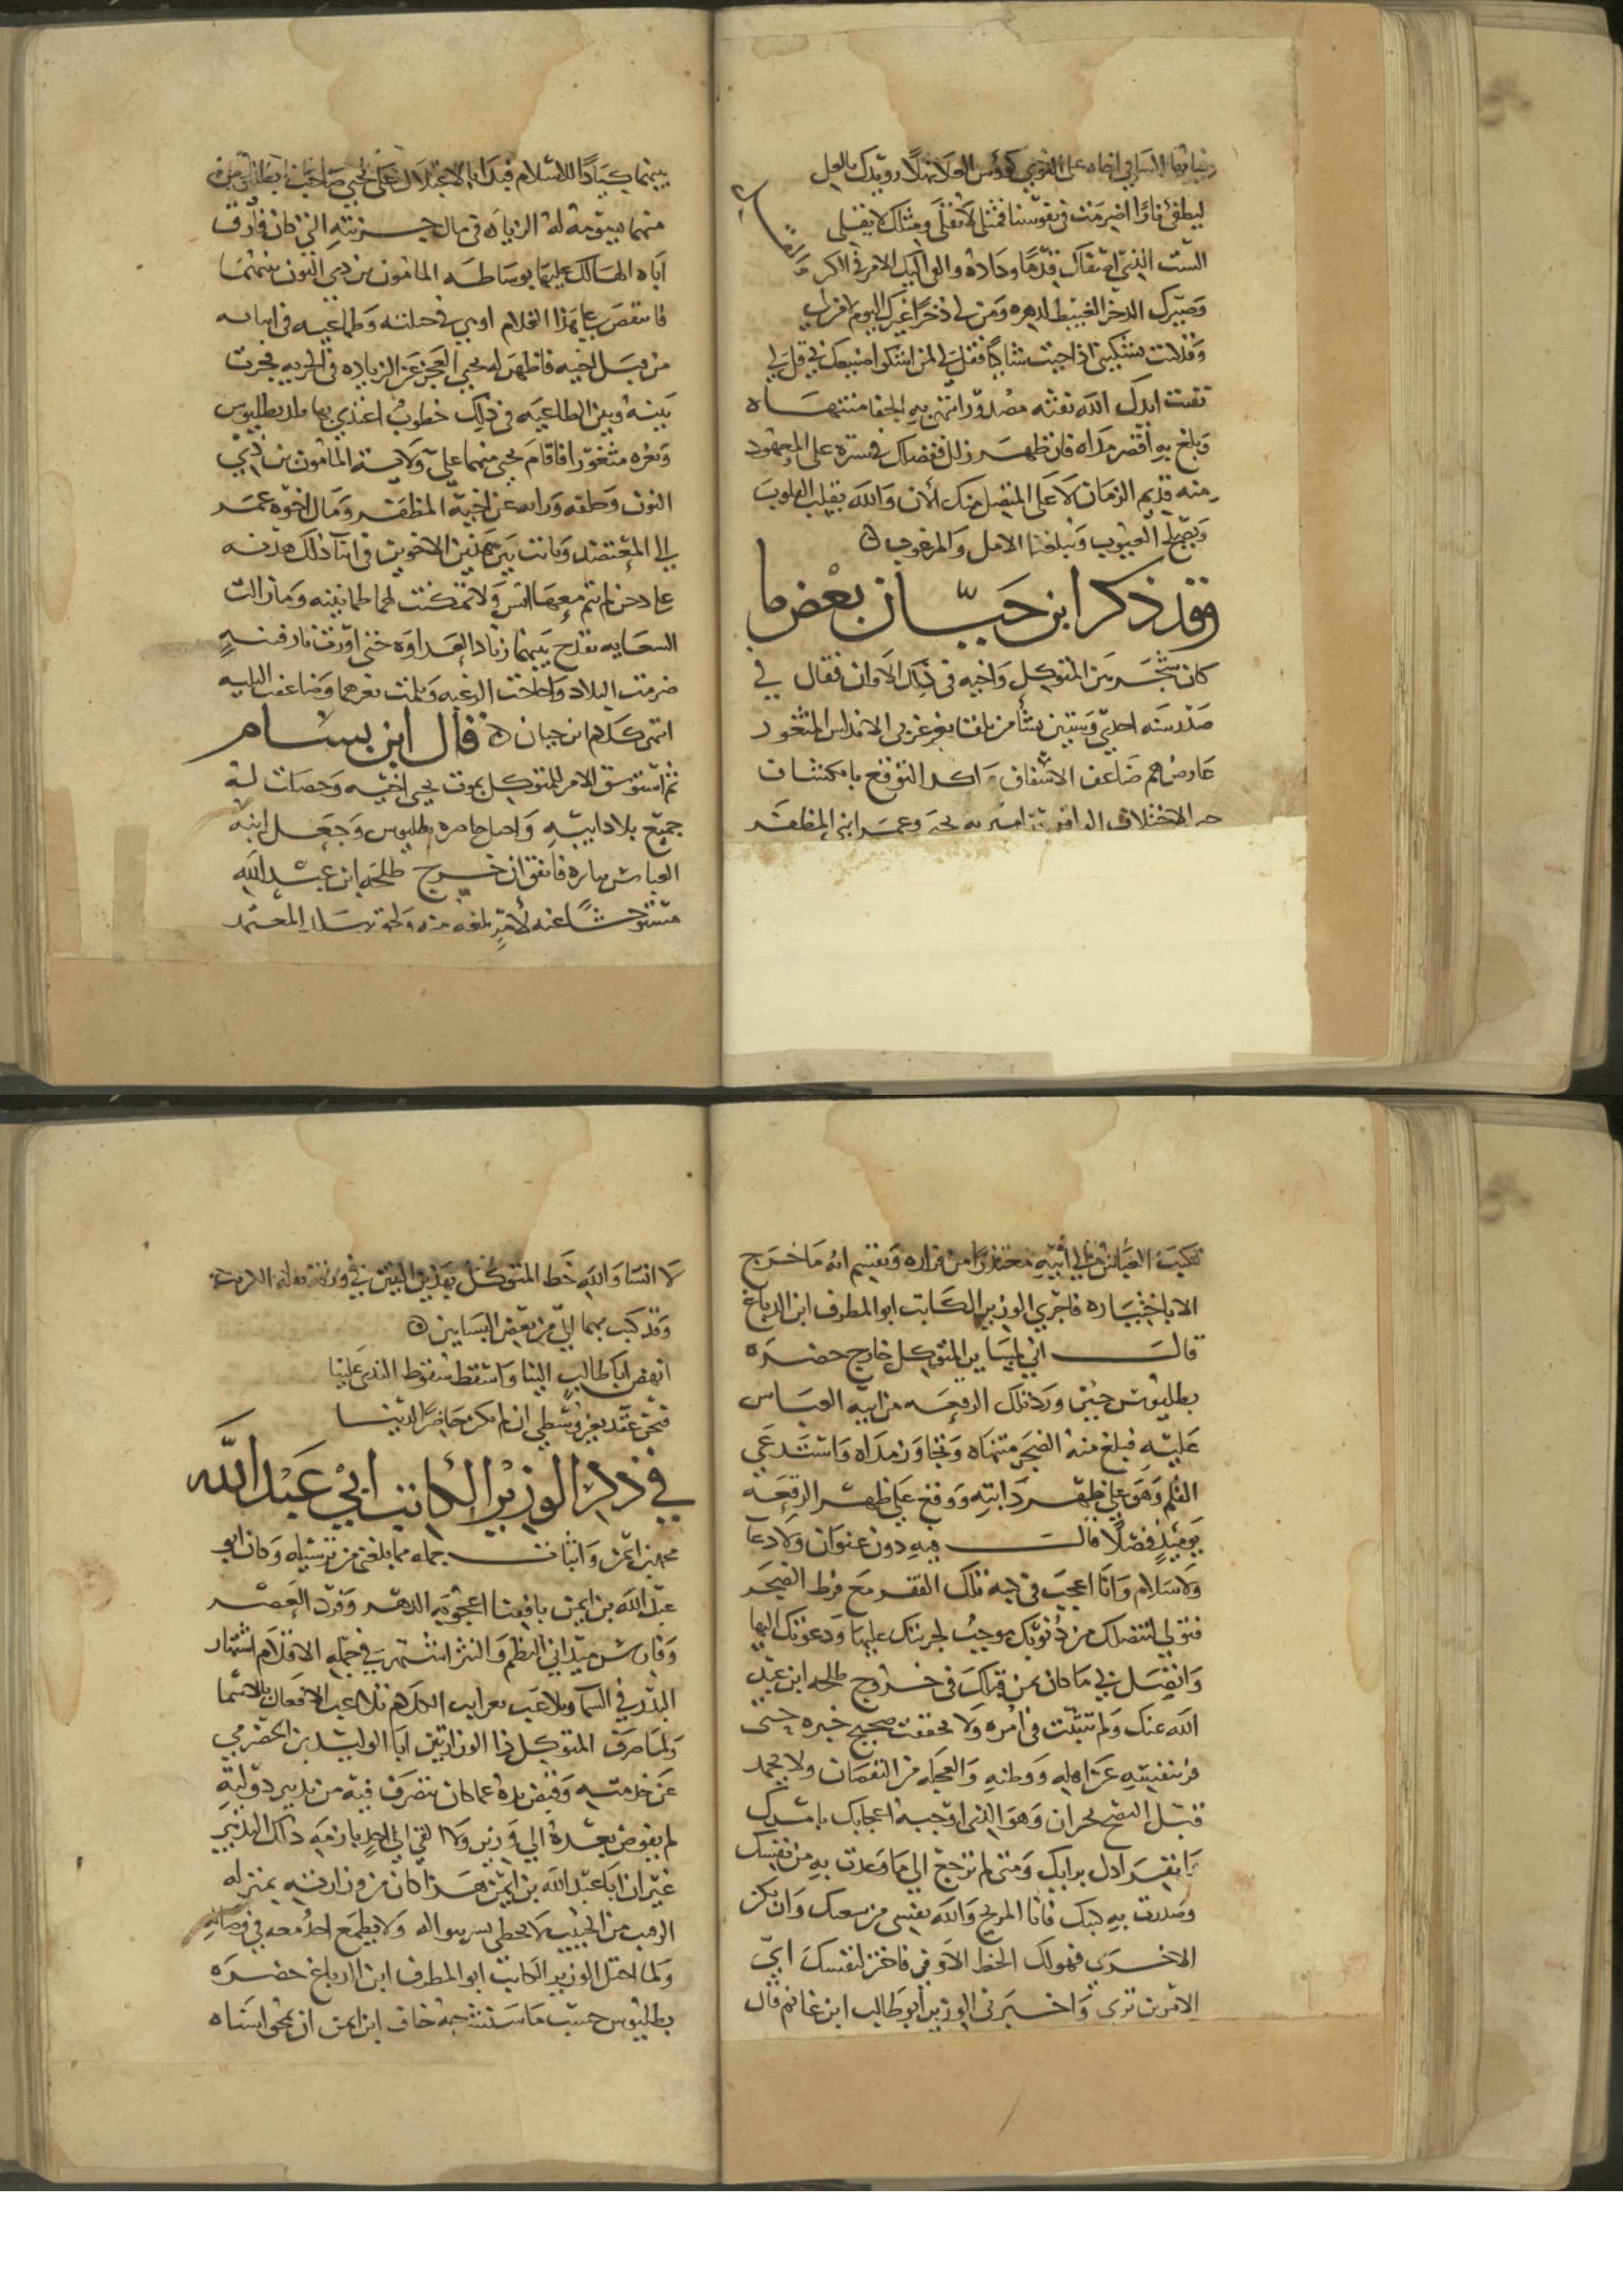 فيا أيها الساقي أخاه على النوى كؤوس القلا مهلا رويدك بالعل
ليطفئ نارا اضرمت في نفوسنا فمثلي لا يقلى ومثلك لا يقلي
الست الذي اصفاك قدما وداده والقى اليك الامر في الكثر
وصيرك الذخر الغبيط لدهره ومن لي ذخرا غيرك اليوم لا من لي
وقد كنت تشكيني اذا جئت شاكيا فقل لي لمن اشكو صنيعك بي قل لي
نفثت ايدك الله نفثة مصدور انتهى به الجفا منتهاه
وبلغ به اقصى مداه فان ظهر زلل ففضلك في ستره على المعهود
منه قديم الزمان لا على المتصل منك الان والله يقلب القلوب
ويصلح العيوب ويبلغنا الامل والمرغوب
وقد ذكر ابن حيان بعض ما
كان شجر بين المتوكل واخيه في ذلك الاوان فقال في
صدر سنة احدى وستين نشأ من تلقا ثغر غربي الاندلس المثغور
عارض هم ضاعف الاشفاق واكد التوقع بانكشاف
الاختلاف الواقع بين اميريه يحيى وعمر ابني المظفر
بينهما كيادا للاسلام فبدا بالاعتلال على يحيى صاحب بطليوس
منهما بسومه له الزيادة في مال جزيته التي كان فارق
اباه الهالك عليها بوساطة المامون بن ذي النون بينهما
فانتقض بها هذا الغلام اوبي في حلته وطماعية في ابيانه
من قبل اخيه فاظهر له يحيى العجز عن الزيادة في الجزية فجرت
بينه وبين الطاغية في ذلك خطوب اغتدي بها بلد بطليوس
وثغره مثغورا فاقام يحيى منهما على ولاية المامون بن ذي
النون وحلفه وراثة عن ابيه المظفر ومال اخوه عمر
الى المعتضد وكانت بين هذين الاخوين في اثنا ذلك هدنة
على دخن لم يتم معها انس ولا تمكنت لهما طمانينة وما زالت
السعاية تقدح بينهما زناد العداوة حتى اورت نار فتنة
ضرمت البلاد واجاحت الرعية وثلمت ثغرهما وضاعفت البلية
انتهى كلام ابن حيان قال ابن بسام
ثم استوسق الامر للمتوكل بموت يحيى اخيه وحصلت له
جميع بلاد ابيه واحتل حاضرة بطليوس وجعل ابنه
العباس بيابرة فاتفق ان خرج طلحة ابن عبد الله
مستوحشا عنه لامر بلغه منه ولحق ببلد المعتمد
فكتب العباس الى ابيه معتذرا من فراره ويقسم انه ما خرج
الا باختياره فاخبرني الوزير الكاتب ابو المطرف ابن الدباغ
قال اني لمساير المتوكل خارج حضرة
بطليوس حين ورد تلك الرقعة من ابنه العباس
عليه فبلغ منه الضجر منتهاه وتجاوز مداه واستدعى
القلم وهو على ظهر دابته ووقع على ظهر الرقعة
يومئذ فصلا قال فيه دون عنوان ولا دعا
ولا سلام وانا اعجب في نبه تلك الفقر مع فرط الضجر
فتولي لتنصلك من ذنوبك موجب لجرءتك عليها ودعوتك اليها
واتصل بي ما كان من قبلك في خروج طلحة ابن عبد
الله عنك ولم تتثبت في امره ولا تحققت صحيح خبره حتى
فر بنفسه عن اهله ووطنه والعجلة من النقصان ولا يحمد
قبل النضج بحران وهو الذي اوجبه اعجابك بامرك
وانفرادك برايك ومتى لم ترجع الى ما وعدت به من نفسك
وصدرت به كتبك فانا المريح والله نفسي من سعيك وان تكن
الاخرى فهو لك الحظ الاوفى فاختر لنفسك اي
الامرين ترى واخبرني الوزير ابو طالب ابن غانم قال
لا انسا والله خط المتوكل بهذين البيتين في ورقة بقلة الكرنب
وقد كتب بهما الي من بعض البساتين
انهض ابا طالب الينا واسقط سقوط الندى علينا
فنحن عقد بغير وسطى ان لم تكن حاضرا لدينا
في ذكر الوزير الكاتب ابي عبد الله
محمد بن ايمن واثبات جملة مما بلغني من ترسله وكان ابو
عبد الله بن ايمن بافقنا اعجوبة الدهر وفرد العصر
وفارس ميداني النظم والنثر اشتهر في حملة الاقلام اشتهار
البدر في السما وتلاعب بغرايب الكلام تلاعب الافعال بالاسما
ولما صرف المتوكل ذا الوزارتين ابا الوليد بن الحضرمي
عن خدمته وقبض يده عما كان يتصرف فيه من تدبير دولته
لم يفوض بعده الى وزير ولا القى الى احد بازمة ذلك التدبير
غير ان ابا عبد الله بن ايمن هذا كان من وزارته بمنزلة
الرقيب من الحبيب لا يحظى بسر سواه ولا يطمع احد معه في وصاله
ولما احتل الوزير الكاتب ابو المطرف ابن الدباغ حضرة
بطليوس حسب ما ساشرحه خاف ابن ايمن ان يمحي اسناه